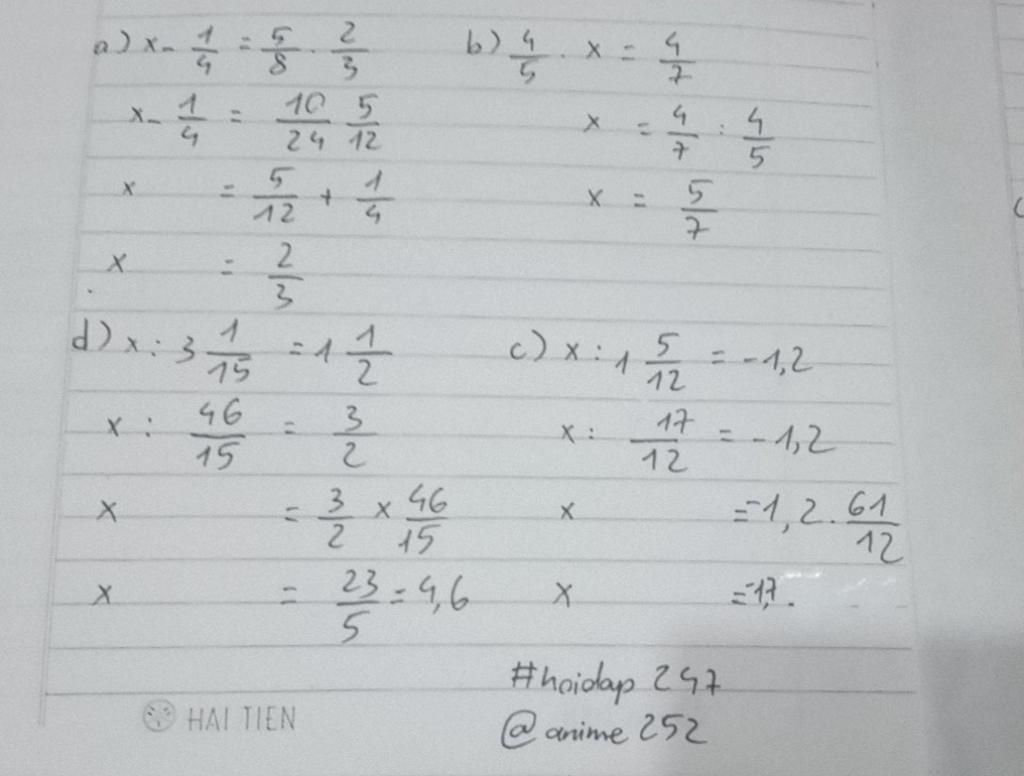 a) x - 1/4 = 5/8 . 2/3
x - 1/4 = 10/24 5/12
x = 5/12 + 1/4
x = 2/3
b) 4/5 . x = 4/7
x = 4/7 : 4/5
x = 5/7
d) x : 3 1/15 = 1 1/2
x : 46/15 = 3/2
x = 3/2 × 46/15
x = 23/5 = 4,6
c) x : 1 5/12 = -1,2
x : 17/12 = -1,2
x = -1,2 . 61/12
x = -1,7.
#hoidap 247
@anime 252
HAI TIEN